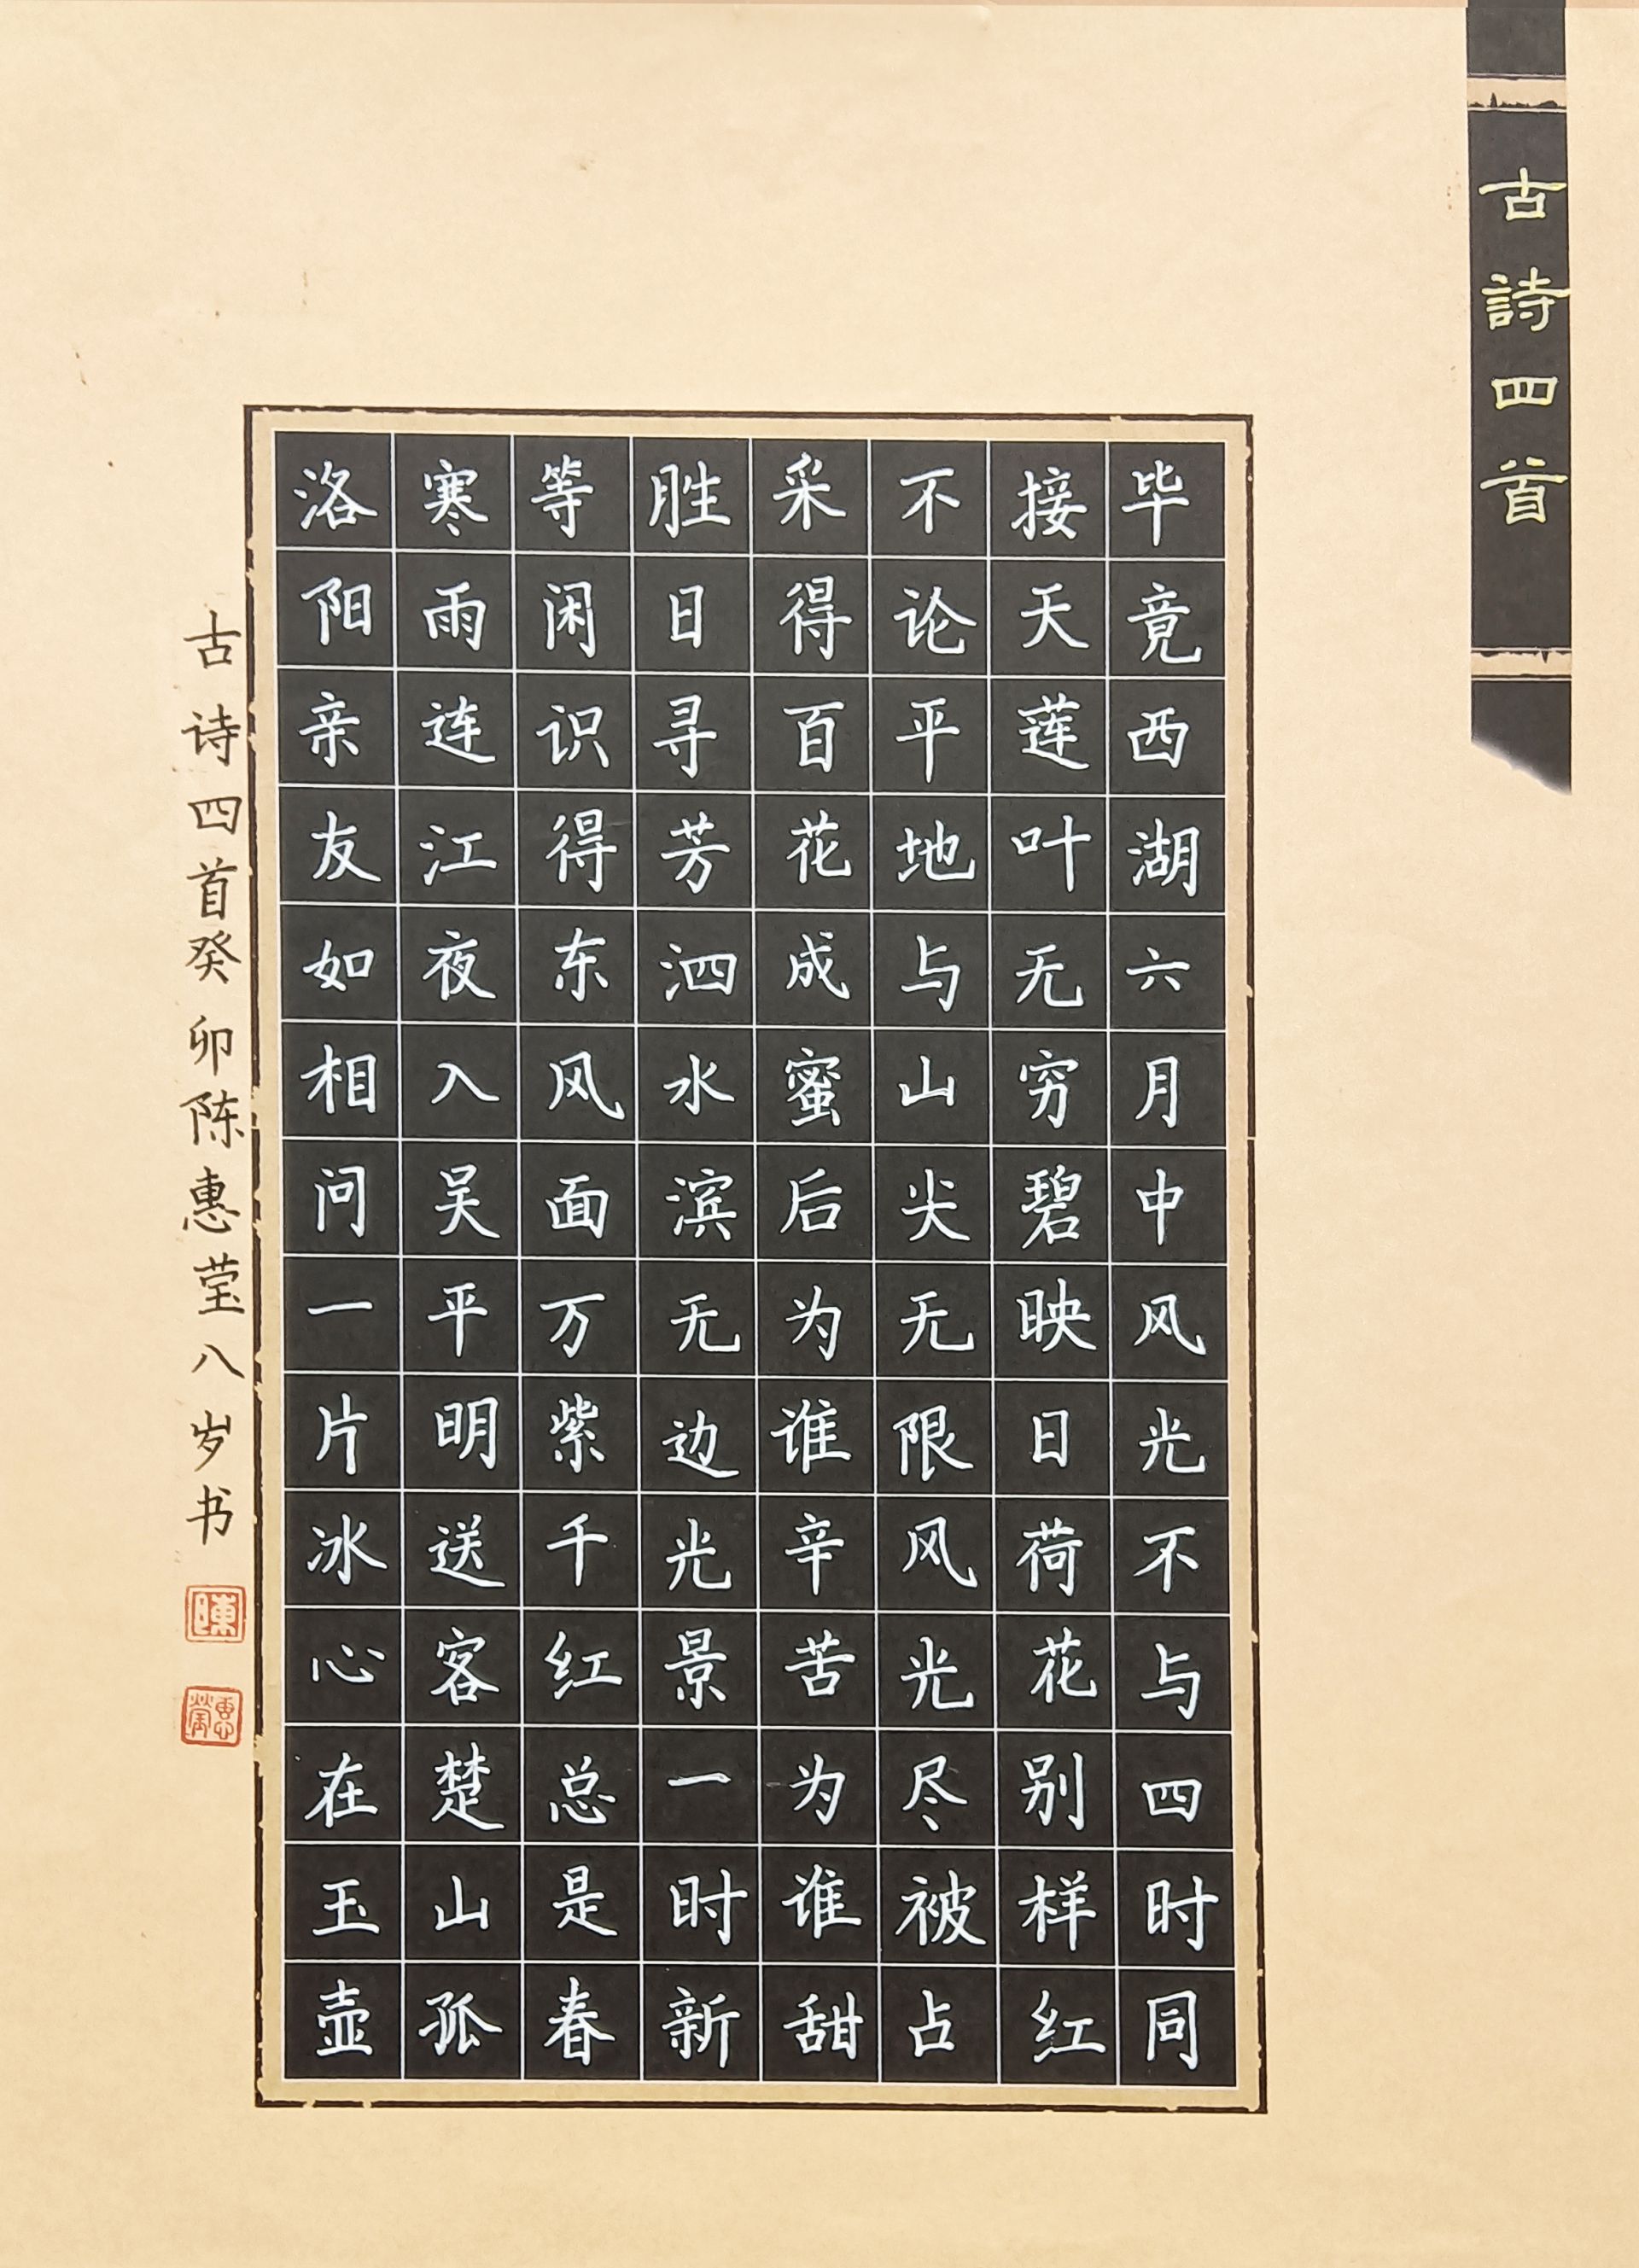 古詩四首
毕竟西湖六月中风光不与四时同
接天莲叶无穷碧映日荷花别样红
不论平地与山尖无限风光尽被占
采得百花成蜜后为谁辛苦为谁甜
胜日寻芳泗水滨无边光景一时新
等闲识得东风面万紫千红总是春
寒雨连江夜入吴平明送客楚山孤
洛阳亲友如相问一片冰心在玉壶
古诗四首癸卯陈惠莹八岁书
陳
惠瑩